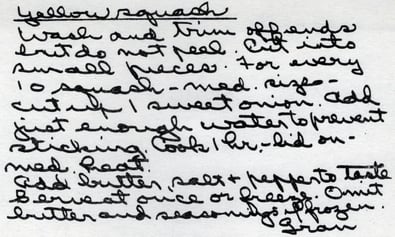 yellow squash
Wash and trim off ends
but do not peel. Cut into
small pieces. For every
10 squash - med. size -
cut up 1 sweet onion. Add
just enough water to prevent
sticking. Cook 1 hr. - lid on -
med. heat.
Add butter, salt + pepper to taste
Serve at once or freeze. Omit
butter and seasonings if frozen.
Gran